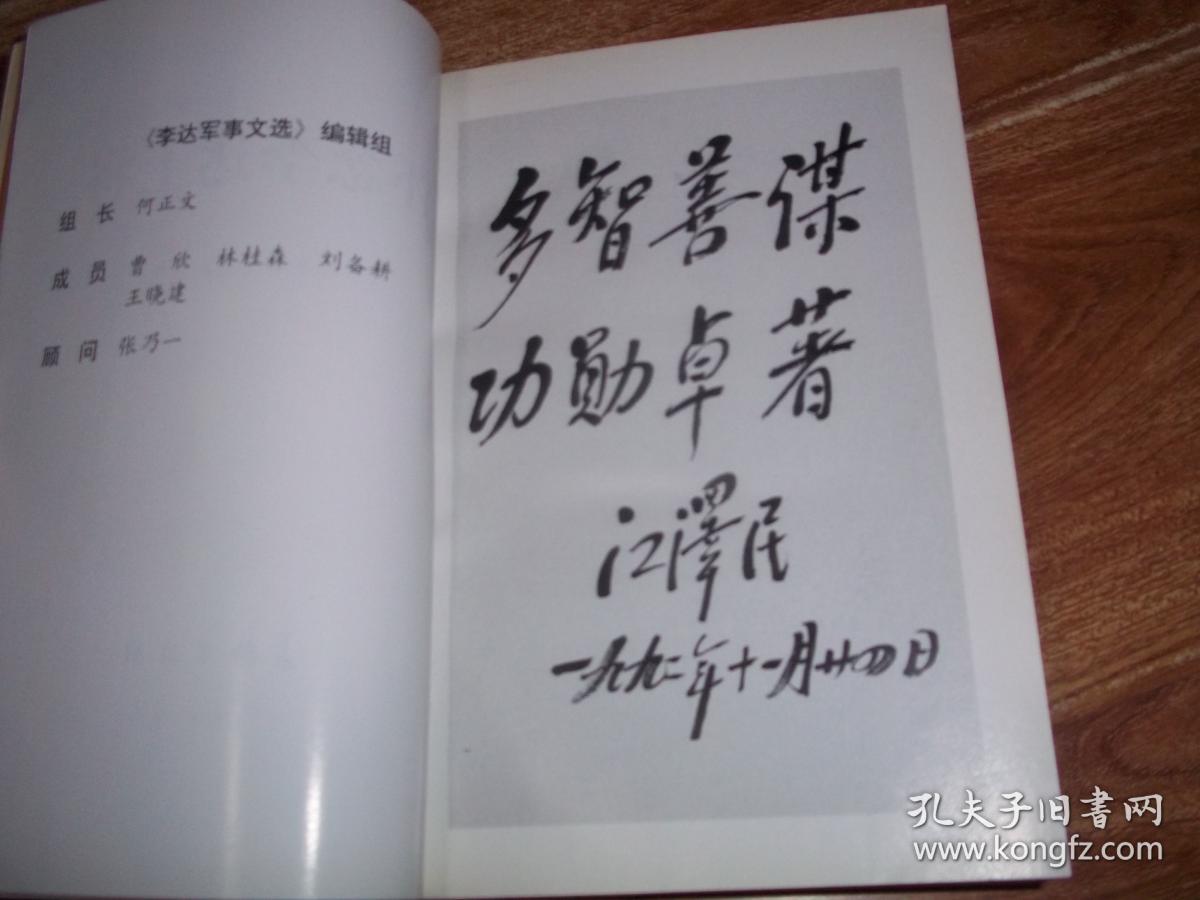 《李达军事文选》编辑组
组 长 何正文
成 员 曹 欣 林桂森 刘备耕
王晓建
顾 问 张乃一
多智善谋
功勋卓著
江澤民
一九九二年十一月廿四日
孔夫子旧書网
www.kongfz.com